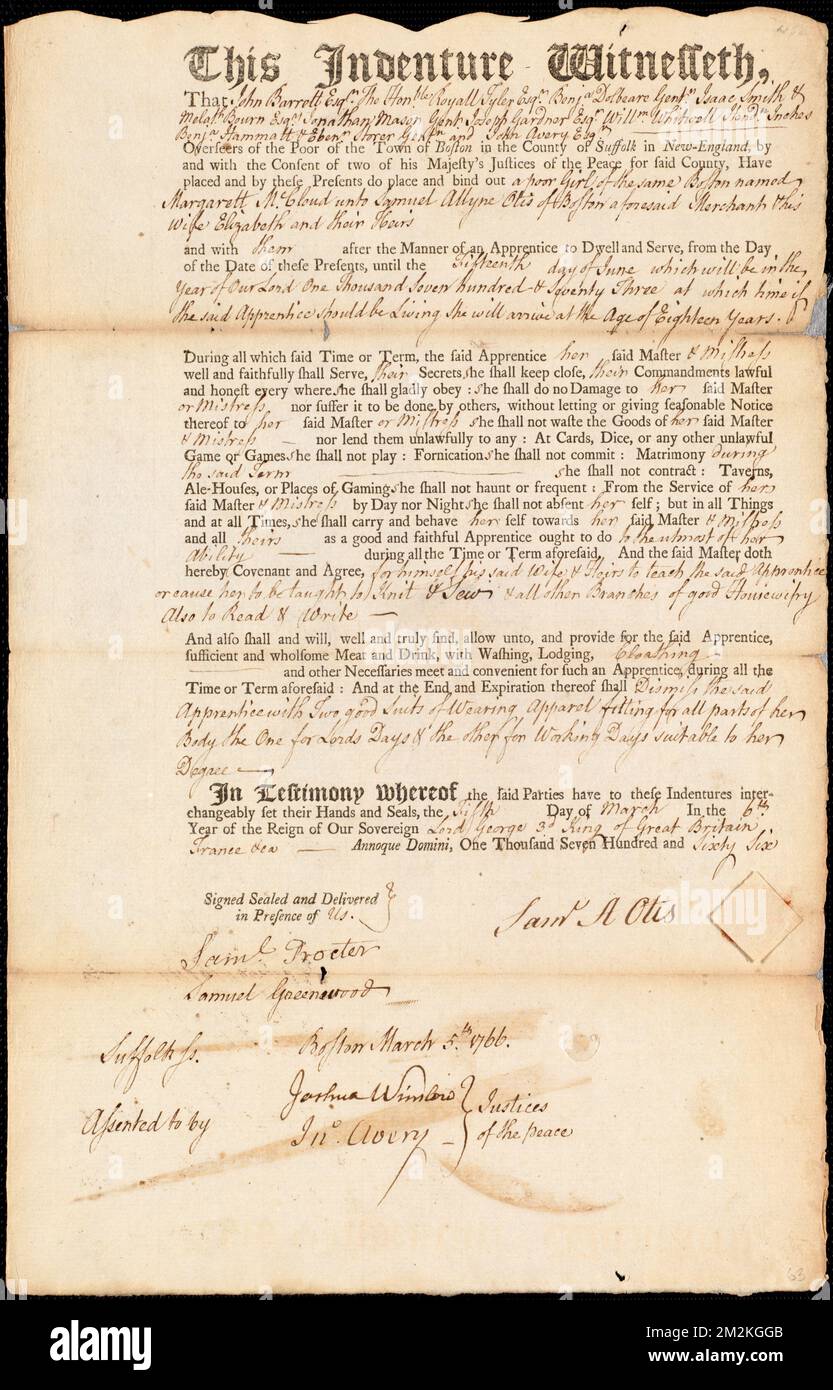 This Indenture Witnesseth,
That John Barrett Esqr. The Honble Royall Tyler Esqr. Benja Dolbeare Gentn Isaac Smith &
Melath Bourn Esqrs Jonathan Mason Gent Joseph Gardner Esqr. Willm Whitwell Hendn Inches
Benja Hammatt & Ebenr Storer Gentn and John Avery Esqr
Overseers of the Poor of the Town of Boston in the County of Suffolk in New-England, by
and with the Consent of two of his Majesty's Justices of the Peace for said County, Have
placed and by these Presents do place and bind out a poor Girl of the same Boston named
Margarett Mc.Cloud unto Samuel Allyne Otis of Boston aforesaid Merchant & his
Wife Elizabeth and their Heirs
and with them after the Manner of an Apprentice to Dwell and Serve, from the Day
of the Date of these Presents, until the Fifteenth day of June which will be in the
Year of Our Lord One Thousand Seven hundred & Seventy Three at which time if
the said Apprentice should be Living She will arrive at the Age of Eighteen Years.
During all which said Time or Term, the said Apprentice her said Master & Mistress
well and faithfully shall Serve, their Secrets she shall keep close, their Commandments lawful
and honest every where she shall gladly obey : she shall do no Damage to her said Master
or Mistress nor suffer it to be done by others, without letting or giving seasonable Notice
thereof to her said Master or Mistress she shall not waste the Goods of her said Master
& Mistress nor lend them unlawfully to any : At Cards, Dice, or any other unlawful
Game or Games she shall not play : Fornication she shall not commit : Matrimony during
the said Term she shall not contract : Taverns,
Ale-Houses, or Places of Gaming she shall not haunt or frequent : From the Service of her
said Master & Mistress by Day nor Night she shall not absent her self; but in all Things
and at all Times, she shall carry and behave her self towards her said Master & Mistress
and all theirs as a good and faithful Apprentice ought to do to the utmost of her
Ability during all the Time or Term aforesaid. And the said Master doth
hereby Covenant and Agree, for himself his said Wife & Heirs to teach the said Apprentice
or cause her to be taught to Knit & Sew & all other Branches of good Housewifry
Also to Read & Write
And also shall and will, well and truly find, allow unto, and provide for the said Apprentice,
sufficient and wholsome Meat and Drink, with Washing, Lodging, Cloathing
and other Necessaries meet and convenient for such an Apprentice, during all the
Time or Term aforesaid : And at the End and Expiration thereof shall Dismiss the said
Apprentice with Two good Suits of Wearing Apparel fitting for all parts of her
Body the One for Lords Days & the other for Working Days suitable to her
Degree
In Testimony whereof the said Parties have to these Indentures inter-
changeably set their Hands and Seals, the Fifth Day of March In the 6th
Year of the Reign of Our Sovereign Lord George 3d King of Great Britain
France &ca Annoque Domini, One Thousand Seven Hundred and Sixty Six
Signed Sealed and Delivered
in Presence of Us.
Saml. A Otis
Saml. Procter
Samuel Greenwood
Suffolk ss. Boston March 5.th 1766.
Assented to by
Joshua Winslow
Jno. Avery
Justices
of the peace
63
alamy
Image ID: 2M2KGGB
www.alamy.com